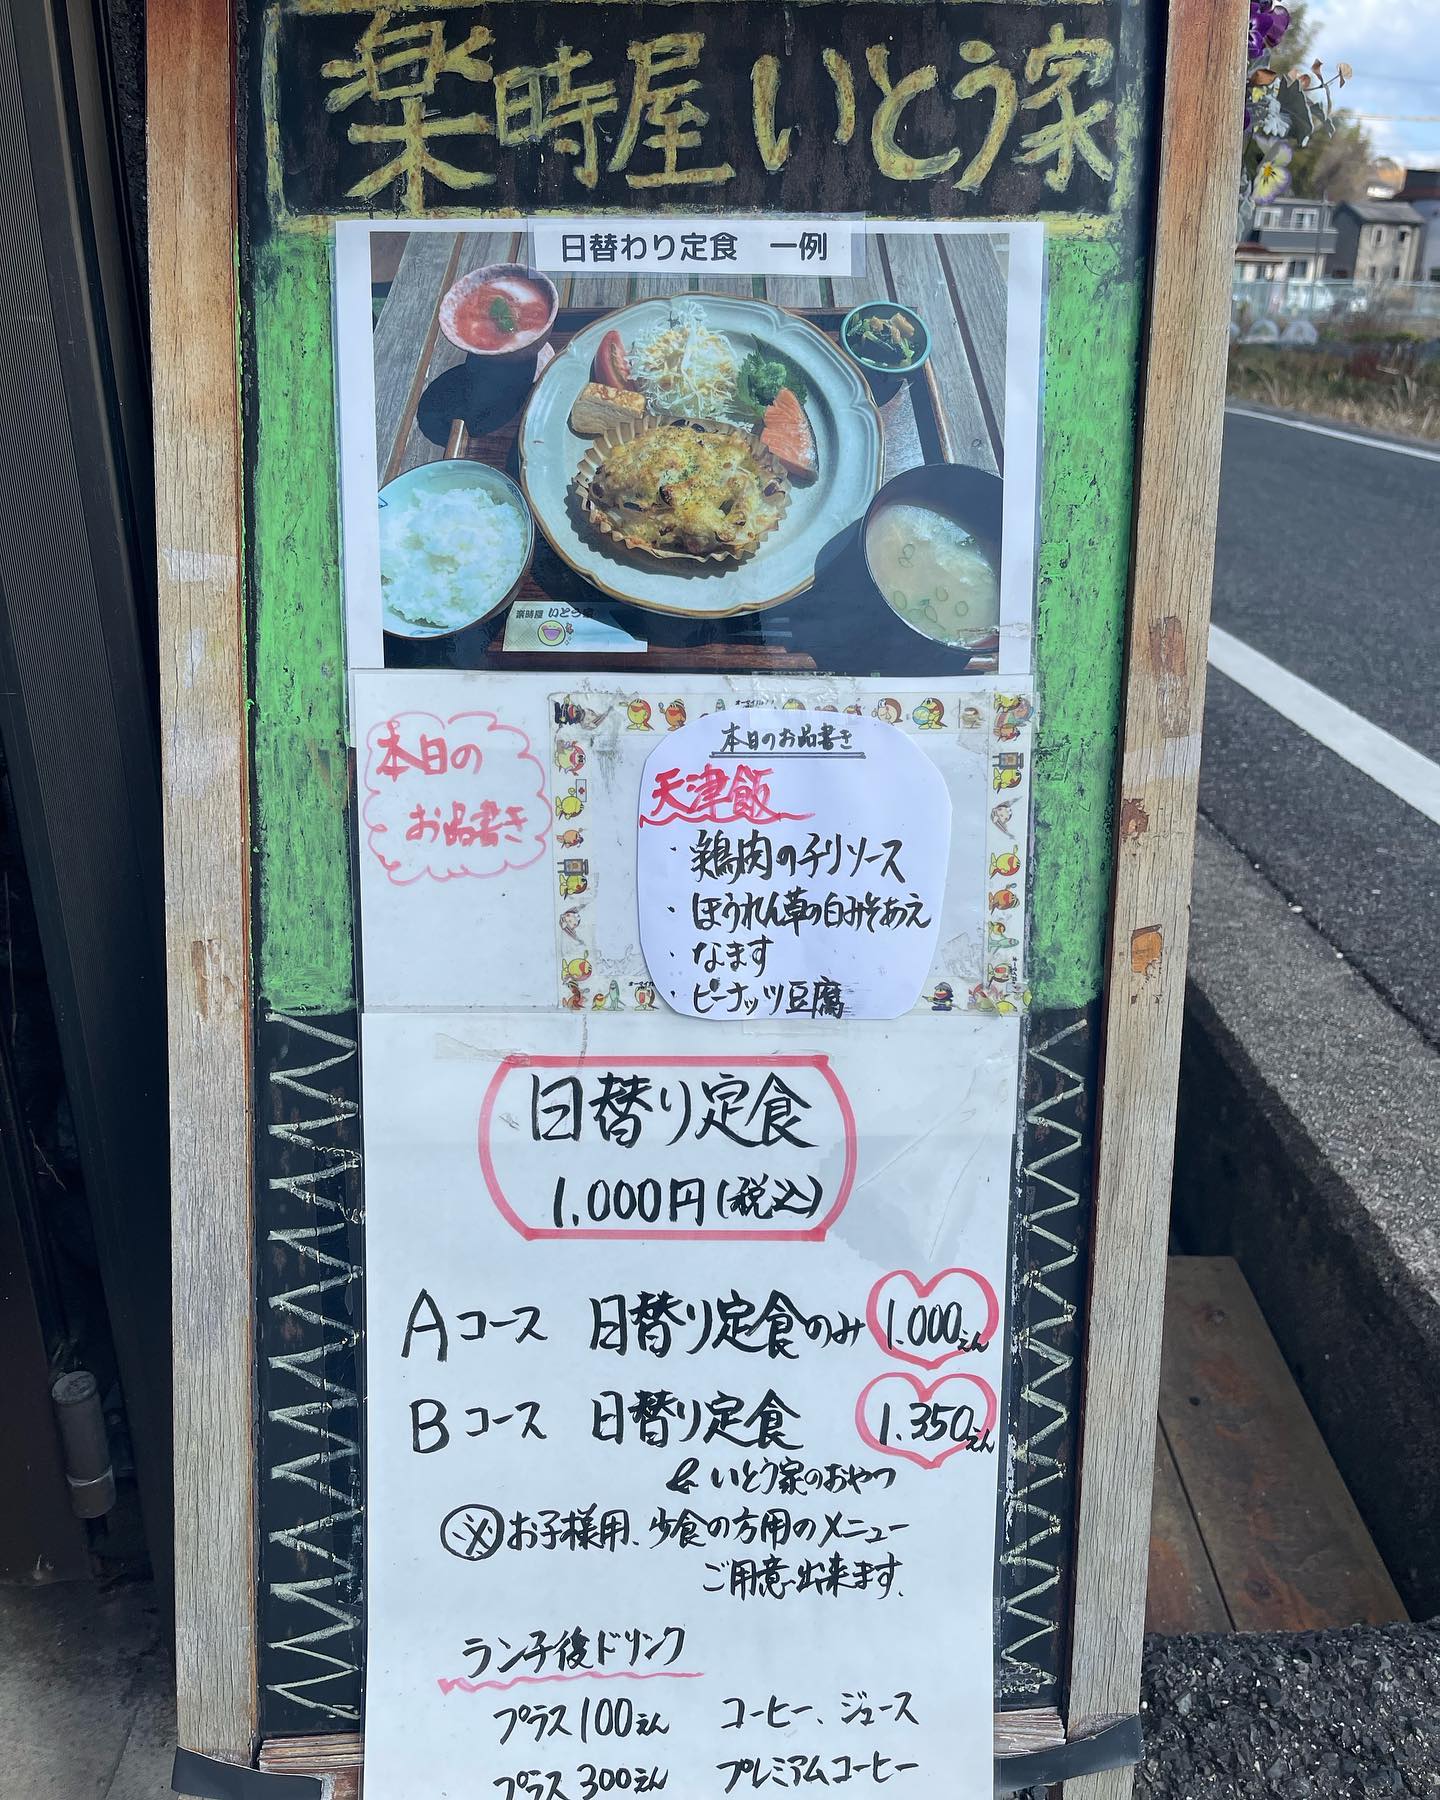 楽時屋 いとう家
日替わり定食 一例
楽時屋 いとう家
本日の
お品書き
本日のお品書き
天津飯
・鶏肉のチリソース
・ほうれん草の白みそあえ
・なます
・ピーナッツ豆腐
日替り定食
1,000円(税込)
Aコース 日替り定食のみ 1.000えん
Bコース 日替り定食 1.350えん
& いとう家のおやつ
※お子様用、少食の方用のメニュー
ご用意出来ます。
ランチ後ドリンク
プラス100えん コーヒー、ジュース
プラス300えん プレミアムコーヒー